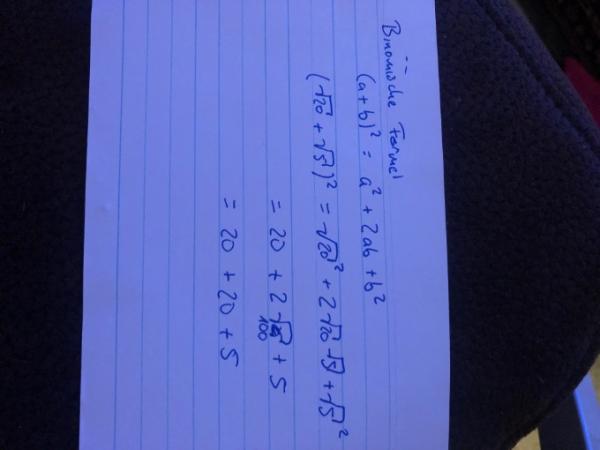 Binomische Formel
(a+b)² = a² + 2ab + b²
(√20 + √5)² = √20² + 2√20 √5 + √5²
= 20 + 2√100 + 5
= 20 + 20 + 5